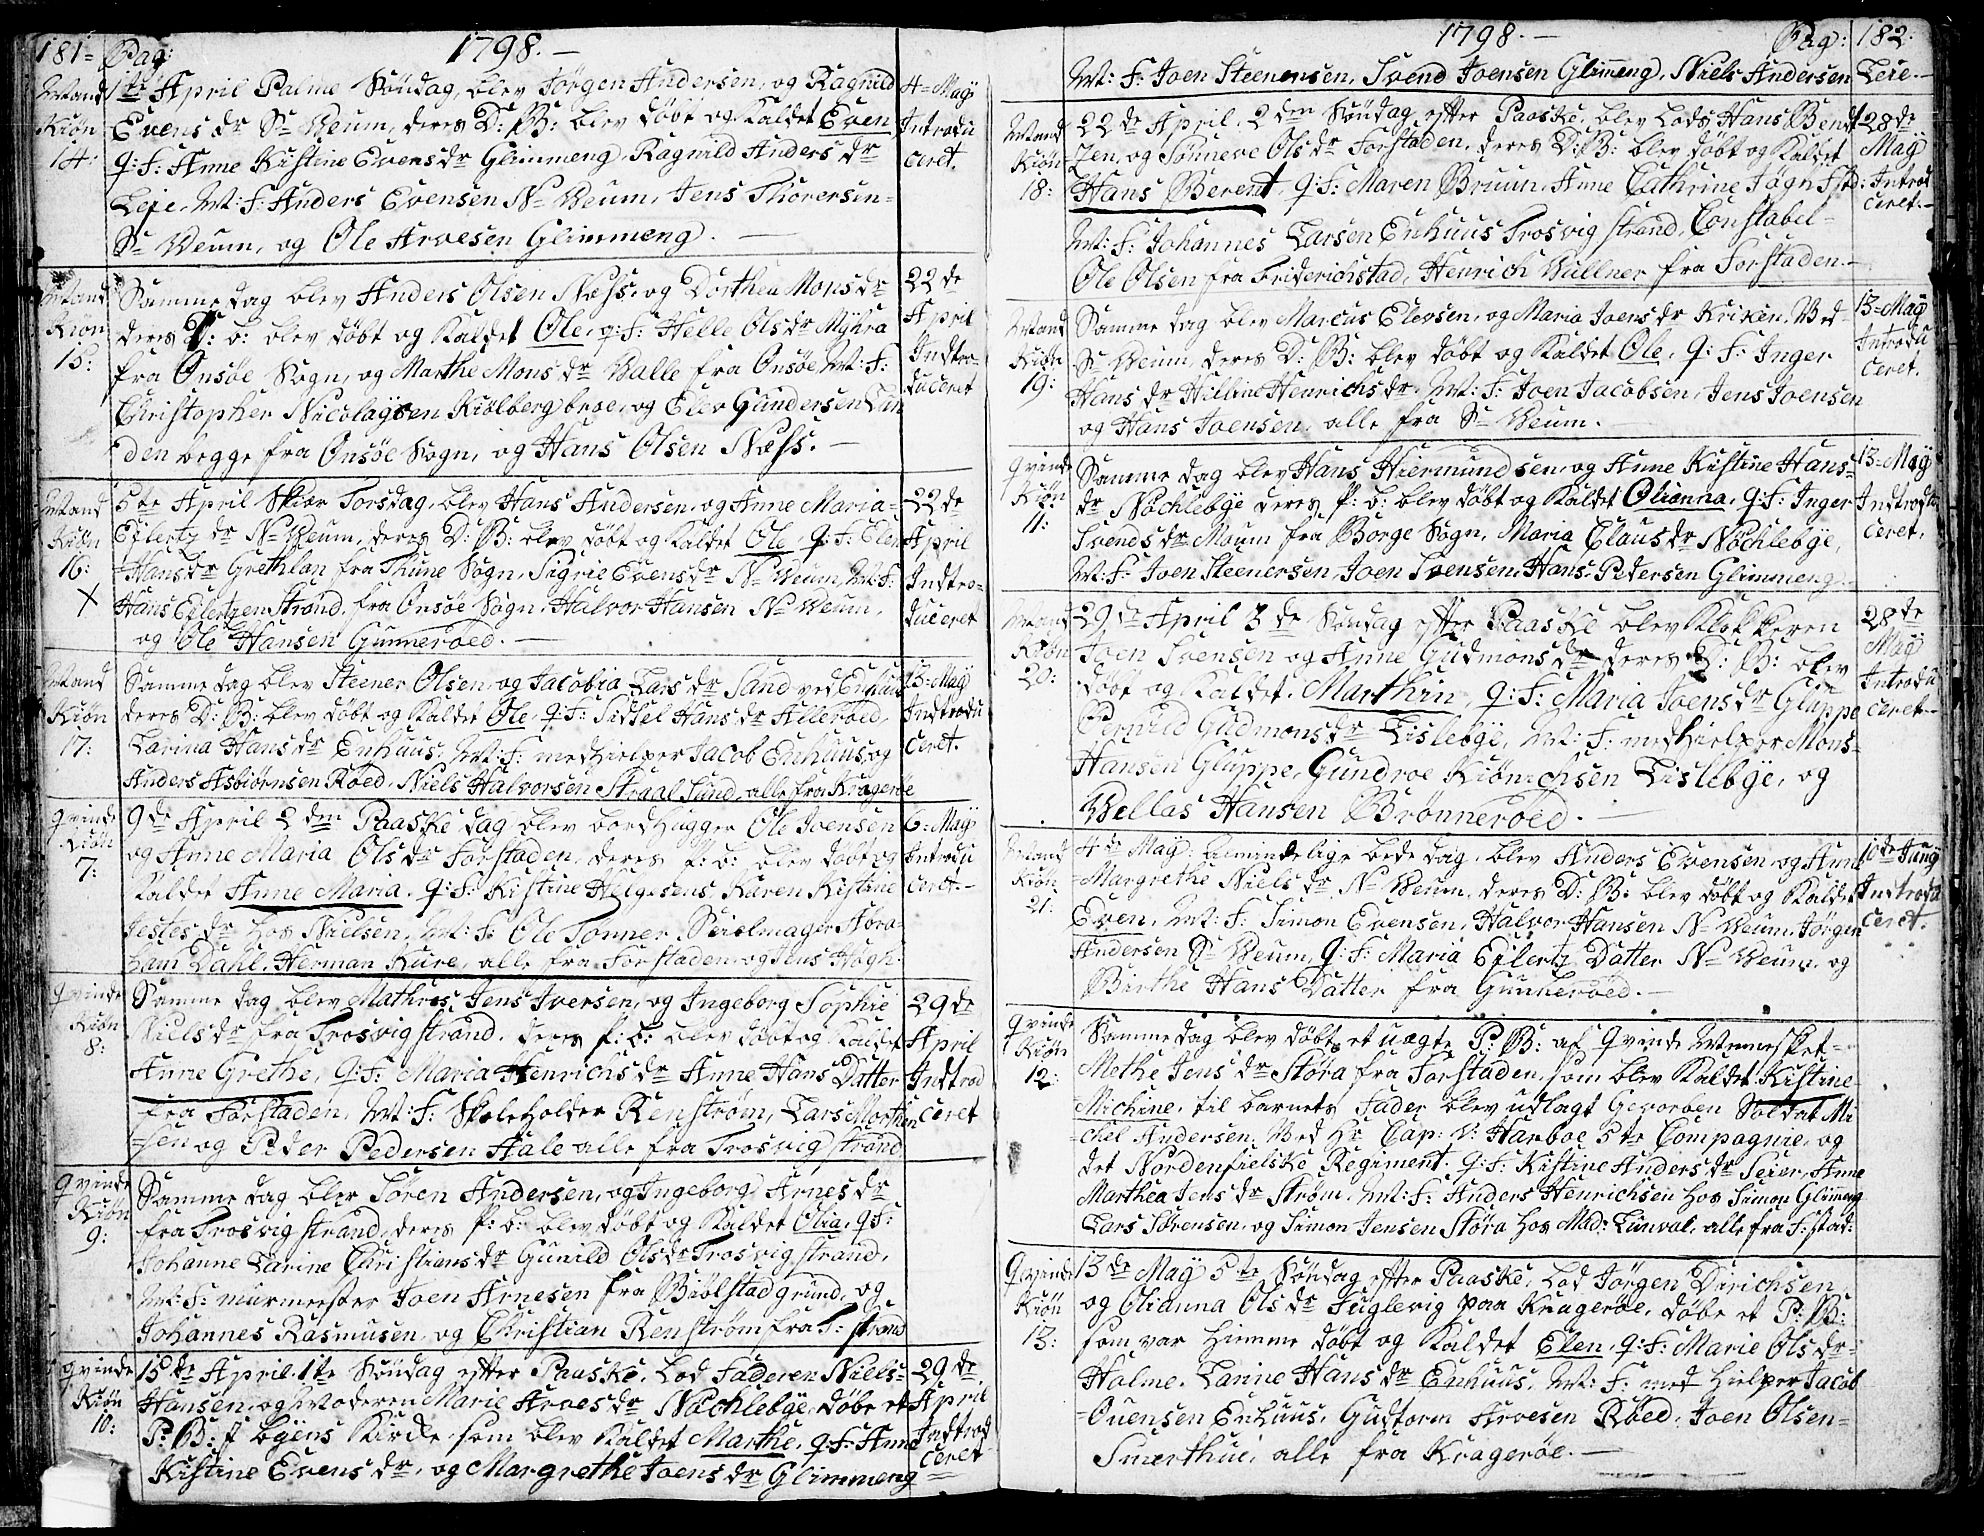 181= Pag: 1798.—
Mand
Kiøn
14:
1te April Palme Søndag, blev Jørgen Andersen, og Ragnild
Evens dr Sr Weum, deres D: B: blev døbt og Kaldet Even
q: F: Anne Kistine Evens dr Glimmeng, Ragnild Anders dr
Leje, M: F: Anders Evensen Nr Weum, Jens Thorersen=
Sr Weum, og Ole Arvesen Glimmeng. —
4= Maÿ
Introdu
ceret.
Mand
Kiøn
15:
Samme dag blev Anders Olsen Næss, og Dorthea Mons dr
deres P: b: blev døbt og Kaldet Ole, q: F: Helle Ols dr Mÿhra
fra Onsøe Sogn, og Marthe Mons dr Walle fra Onsøe, M: F:
Christopher Nicolaÿsen Kiølberg broe, og Elev Gundersen Lun
den begge fra Onsøe Sogn, og Hans Olsen Næss. —
22 de
April
Indtro-
duceret
Mand
Kiøn
16:
X
5te April Skiær Torsdag, blev Hans Andersen, og Anne Maria=
Ejlertz dr Nr Weum, deres D: B: blev døbt og Kaldet Ole, q: F: Elen
Hans dr Grethlan fra Thune Sogn, Sigrie Evens dr Nr Weum, M: F:
Hans Ejlertzen Strand, fra Onsøe Sogn, Halvor Hansen Nr Weum,
og Ole Hansen Gunneroed. —
22 de
April
Indtro-
duceret
Mand
Kiøn
17:
Samme dag blev Steener Olsen, og Jacobia Lars dr Sand ved Enhuus
deres D: B: blev døbt og Kaldet Ole, q: F: Sidsel Hans dr Alleroed,
Larina Hans dr Enhuus, M: F: medhielper Jacob Enhuus, og
Anders Asbiørnsen Røed, Niels Halvorsen Straal Sund, alle fra Kragerøe
13= Maÿ
Indtrodu
ceret.
qvinde
Kiøn
7:
9de April 2 den Paaske dag blev bordhugger Ole Joensen
og Anne Maria Ols dr Forstaden, deres P: b: blev døbt og
Kaldet Anne Maria, q: F: Kistine Helgesens, Karen Kistine
Jestes dr hos Nielsen, M: F: Ole Tonner, Seielmager Abra-
ham Dahl, Herman Kure, alle fra Forstaden og Jens Høgh.
6= Maÿ
Introdu
ceret.—
qvinde
Kiøn
8:
Samme dag blev Mathros Jens Iversen, og Ingeborg Sophie
Niels dr fra Trosvig strand, deres p: b: blev døbt og Kaldet
Anne Grethe, q: F: Maria Henrichs dr Anne Hans Datter
fra Forstaden, M: F: Skoleholder Renstrøm, Lars Morthen
sen og Peder Pedersen Hale alle fra Trosvig strand
29 de
April
Indtrod
ceret
qvinde
Kiøn
9:
Samme dag blev Søren Andersen, og Ingeborg Arnes dr
fra Trosvig strand, deres p: b: blev døbt og Kaldet Olia, q: F:
Johanne Larine Christians dr Gunild Ols dr Trosvig strand,
M: F: murmester Joen Arnesen fra Biølstad grund, og
Johannes Rasmusen, og Christian Renstrøm fra T: strand
qvinde
Kiøn
10:
15 de April 1te Søndag efter Paaske, Lod Faderen Niels=
Hansen, og Moderen Marie Arves dr Nøchlebÿe, døbe et
P: B: i bÿens Kirke, som blev Kaldet Marthe, q: F: Anne
Kistine Evens dr, og Margrethe Joens dr Glimmeng
29 de
April
Indtrod
ceret
1798.— Pag: 182.
M: F: Joen Steenensen, Svend Joensen Glimeng, Niels Andersen Leie.—
Mand
Kiøn
18:
22 de April, 2 den Søndag efter Paaske, blev Lods Hans Bendt
Zen, og Sønneve Ols dr Forstaden, deres D: B: blev døbt og Kaldet
Hans Berent, q: F: Maren Bruun, Anne Cathrine Høgh Fstd:
M: F: Johannes Larsen Enhuus Trosvig strand, Constabel-
Ole Olsen fra Friderichstad, Henrich Wullner fra Forstaden.—
28 de
Maÿ
Introd
ceret.—
Mand
Kiøn
19:
Samme dag blev Marcus Elevsen, og Maria Joens dr Kriken, Ved-
Sr Weum, deres D: B: blev døbt og Kaldet Ole, q: F: Inger
Hans dr Helline Henrichs dr, M: F: Joen Jacobsen, Jens Joensen
og Hans Joensen, alle fra Sr Weum.—
13= Maÿ
Introdu
ceret.
qvinde
Kiøn
11:
Samme dag blev Hans Hiermundsen, og Anne Kistine Hans=
dr Nøchlebÿe deres p: b: blev døbt og Kaldet Olianna, q: F: Inger
Svends dr Moum fra Borge Sogn, Maria Claus dr Nøchlebÿe,
M: F: Joen Steenersen, Joen Svensen, Hans Petersen Glimmeng
13= Maÿ
Indtrodu
ceret.
Mand
Kiøn
20:
29 de April 3 de Søndag efter Paaske blev Klokkeren
Joen Svensen og Anne Gudmons dr deres D: B: blev
døbt og Kaldet Marthin, q: F: Maria Joens dr Gluppe
Pernild Gudmons dr Lislebÿe, M: F: medhielper Mons=
Hansen Gluppe, Gundroe Kiønichsen Lislebÿe, og
Wellas Hansen Brønneroed.—
28 de
Maÿ
Introdu
ceret.—
Mand
Kiøn
21:
4 de Maÿ: almindelige bede dag, blev Anders Evensen og Anne
Margrethe Niels dr Nr Weum, deres D: B: blev døbt og Kaldet
Even, M: F: Simon Evensen, Halvor Hansen Nr Weum, Jørgen
Andersen Sr Weum, q: F: Maria Ejlertz Datter Nr Weum, og
Birthe Hans Datter fra Gunneroed.—
10 de Junÿ
Indtrodu
ceret.
qvinde
Kiøn
12:
Samme dag blev døbt, et uægte P: B: af qvinde Mennesket=
Methe Jens dr Støra fra Forstaden, som blev Kaldet Kistine
Michine, til barnets Fader blev udlagt Gevorben Soldat Mi
chel Andersen, Ved Hr Cap: v: Harboe 5te Compagnie, og
det Nordenfielske Regiment. q: F: Kistine Anders dr Seier, Anne
Marthea Jens dr Strøm, M: F: Anders Henrichsen hos Simon Glimeng
Lars Sørensen, og Simon Jensen Støra hos Mad: Lunval, alle fra F: stad:
Qvinde
Kiøn
13:
13 de Maÿ 5te Søndag efter Paaske, Lod Jørgen Dirichsen
og Olianna Ols dr Fuglevig paa Kragerøe, døbe et P: B:
som var hiemme døbt og Kaldet Elen, q: F: Marie Ols dr=
Holme, Larine Hans dr Enhuus, M: F: med hielper Jacob
Ouensen Enhuus, Gudtorm Arvesen Røed, Joen Olsen=
Smerthue, alle fra Kragerøe.—